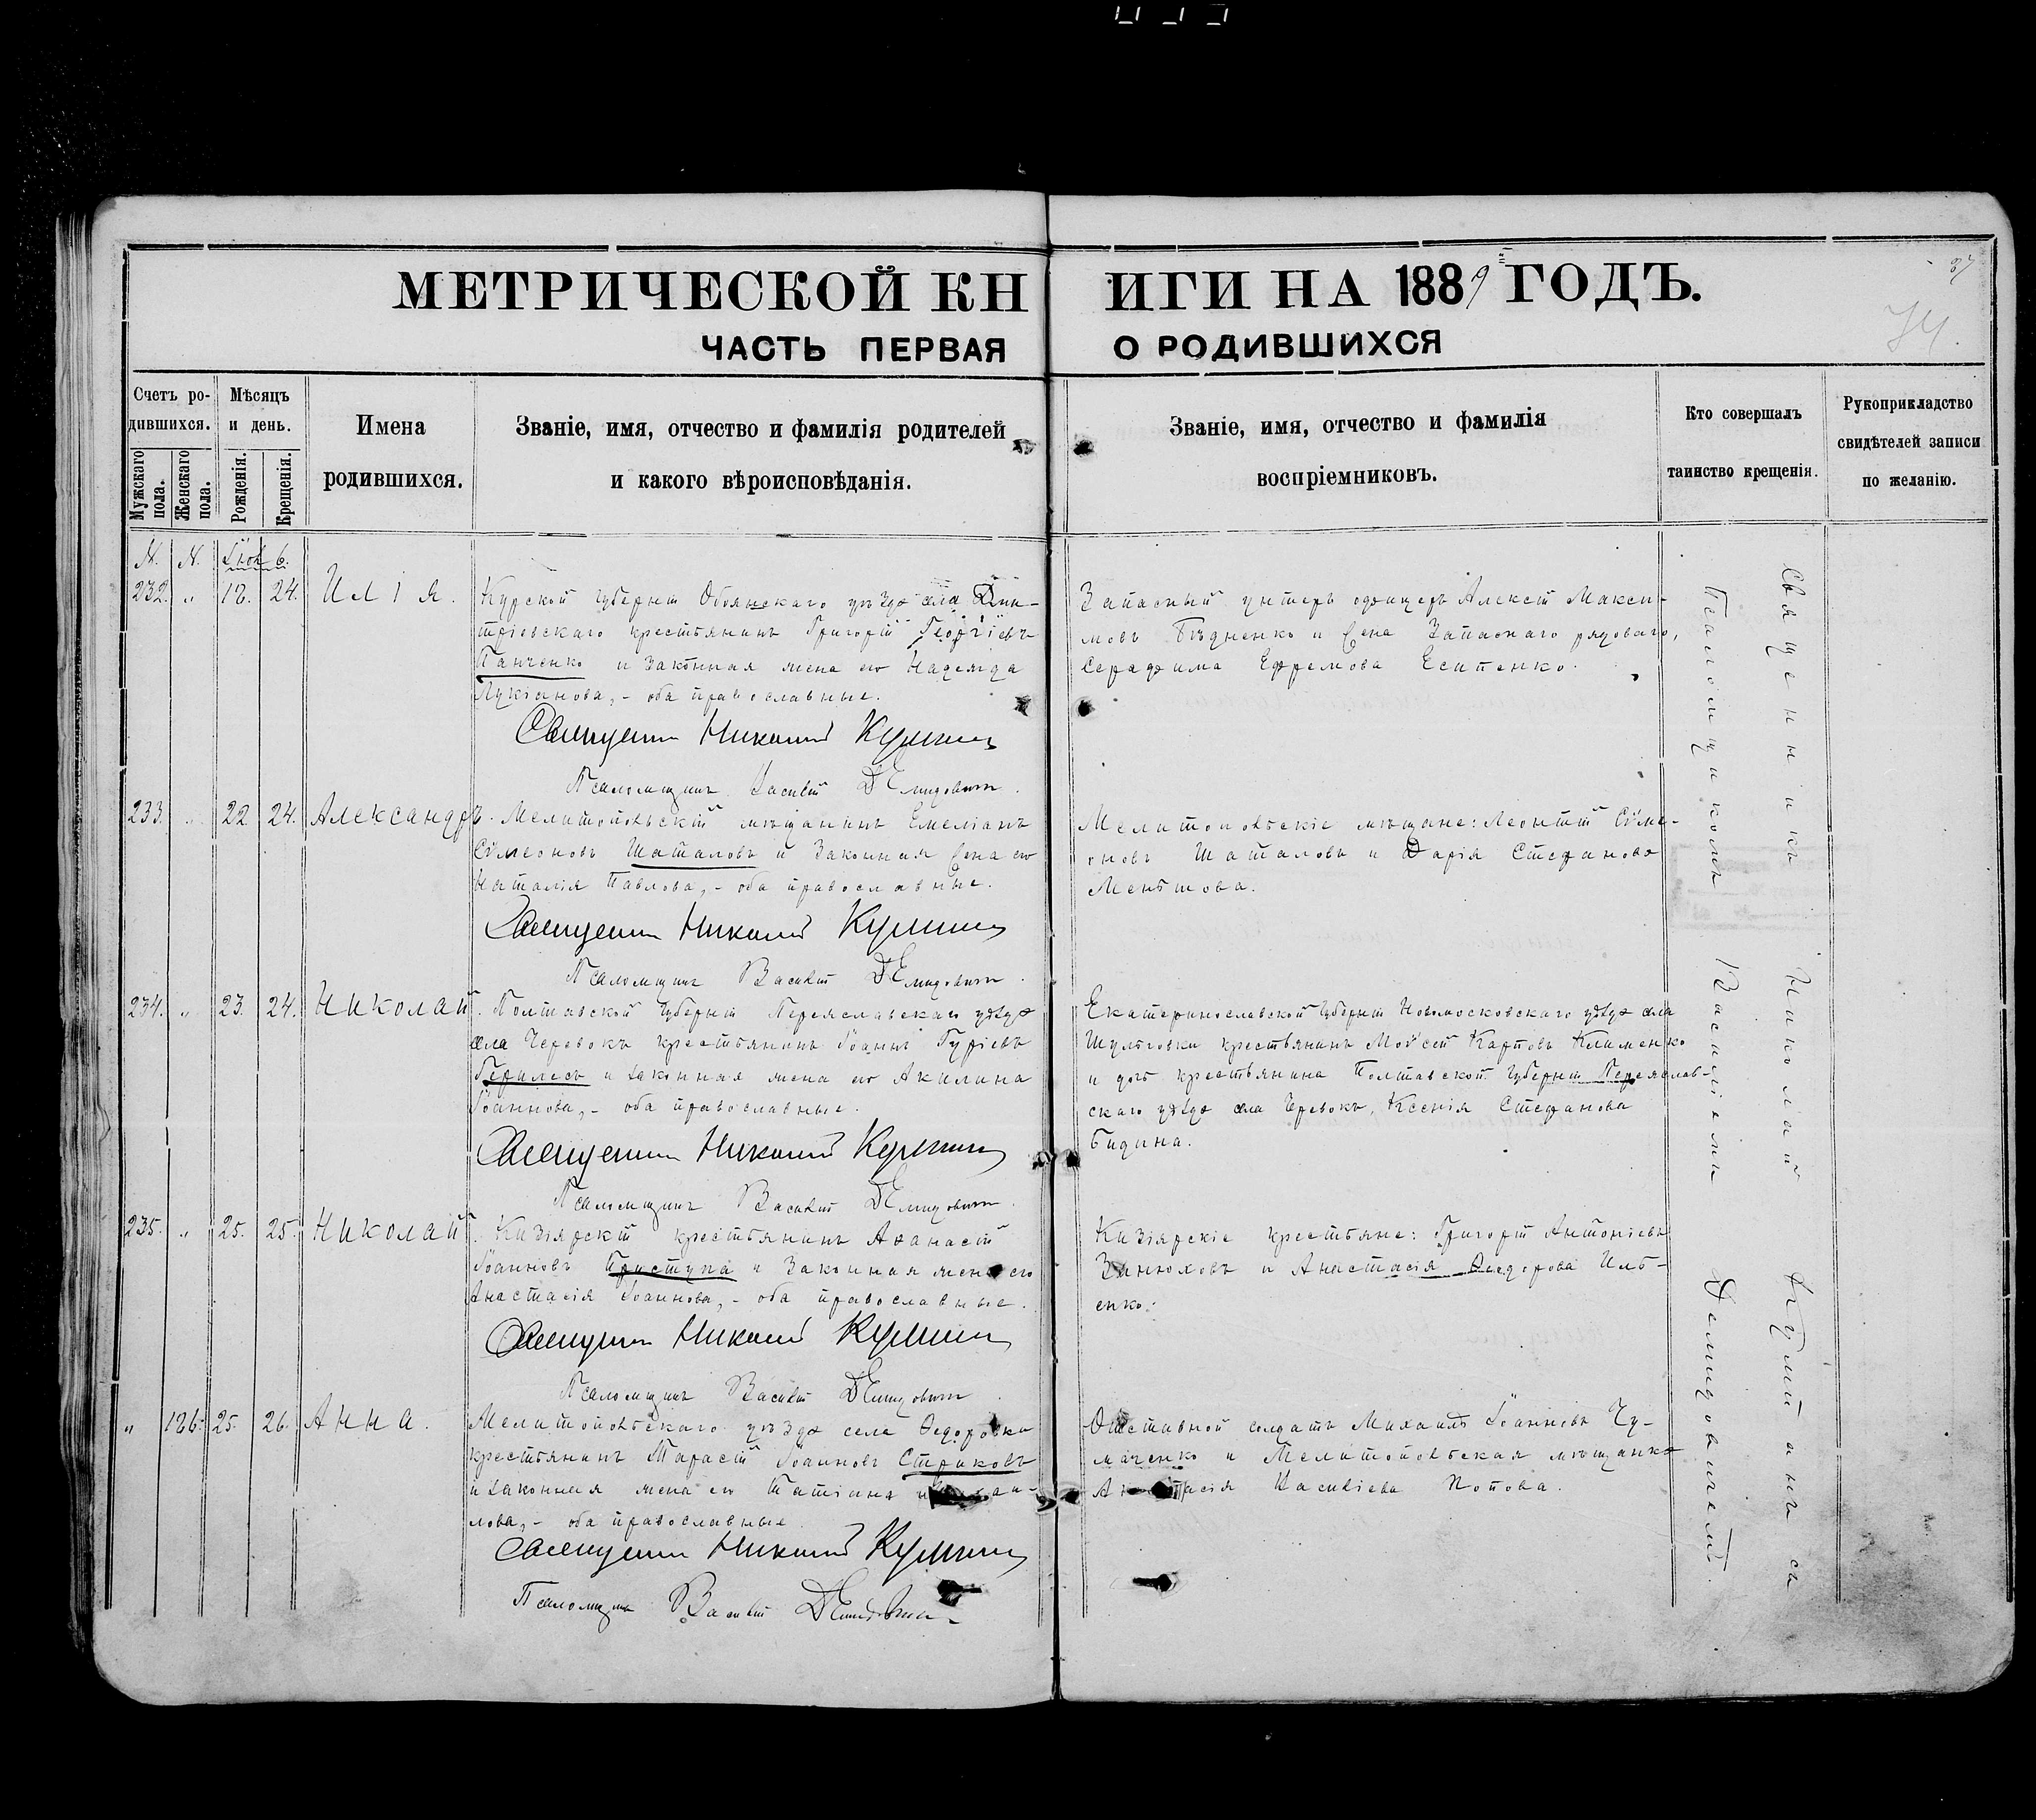 МЕТРИЧЕСКОЙ КНИГИ НА 1889 ГОДЪ.
87
74.
ЧАСТЬ ПЕРВАЯ О РОДИВШИХСЯ
Счетъ родившихся.
Мужскаго пола.
Женскаго пола.
Мѣсяцъ и день.
Рожденія.
Крещенія.
Имена
родившихся.
Званіе, имя, отчество и фамилія родителей
и какого вѣроисповѣданія.
Званіе, имя, отчество и фамилія
воспріемниковъ.
Кто совершалъ
таинство крещенія.
Рукоприкладство
свидѣтелей записи
по желанію.
№. №.
232. " 18. 24. Илія.
Курской губерніи Обоянскаго уѣзда села Дми-
тріевскаго крестьянинъ Григорій Георгіевъ
Панченко и законная жена его Надежда
Лукіанова, - оба православные.
Священникъ Николай
Псаломщикъ Василій Демидовичъ.
Запасный унтеръ офицеръ Алексій Макси-
мовъ Бѣдненко и жена запаснаго рядоваго,
Серафима Ефремова Есипенко.
233. " 22. 24. Александръ.
Мелитопольскій мѣщанинъ Емеліанъ
Сѵмеоновъ Шаталовъ и законная жена его
Наталія Павлова, - оба православные.
Священникъ Николай
Псаломщикъ Василій Демидовичъ.
Мелитопольскіе мѣщане: Леонтій Сѵме-
оновъ Шаталовъ и Дарія Стефанова
234. " 23. 24. Николай.
Полтавской губерніи Переяславскаго уѣзда
села Черевокъ крестьянинъ Іоаннъ Гуріевъ
и законная жена его Акилина
Іоаннова, - оба православные.
Священникъ Николай
Псаломщикъ Василій Демидовичъ.
Екатеринославской губерніи Новомосковскаго уѣзда села
Шульговки крестьянинъ Моѵсей Карповъ Клименко
и дочь крестьянина Полтавской губерніи Переяслав-
скаго уѣзда села Черевокъ, Ксенія Стефанова
235. " 25. 25. Николай.
Кизіярскій крестьянинъ Аѳанасій
Іоанновъ Приступа и законная жена его
Анастасія Іоаннова, - оба православные.
Священникъ Николай
Псаломщикъ Василій Демидовичъ
Кизіярскіе крестьяне: Григорій Антоніевъ
Занюховъ и Анастасія Ѳеодорова Иль-
енко.
" 186. 25. 26. Анна.
Мелитопольскаго уѣзда села Ѳедоровки
крестьянинъ Тарасій Іоанновъ Стриковъ
и законная жена его Татіана
лова, - оба православные
Священникъ Николай
Псаломщикъ Василій Демидовичъ
Отставной солдатъ Михаилъ Іоанновъ Чу-
маченко и Мелитопольская мѣщанка
Анастасія Василіева Попова.
Священникъ Николай
Псаломщикомъ Василіемъ Демидовичемъ.